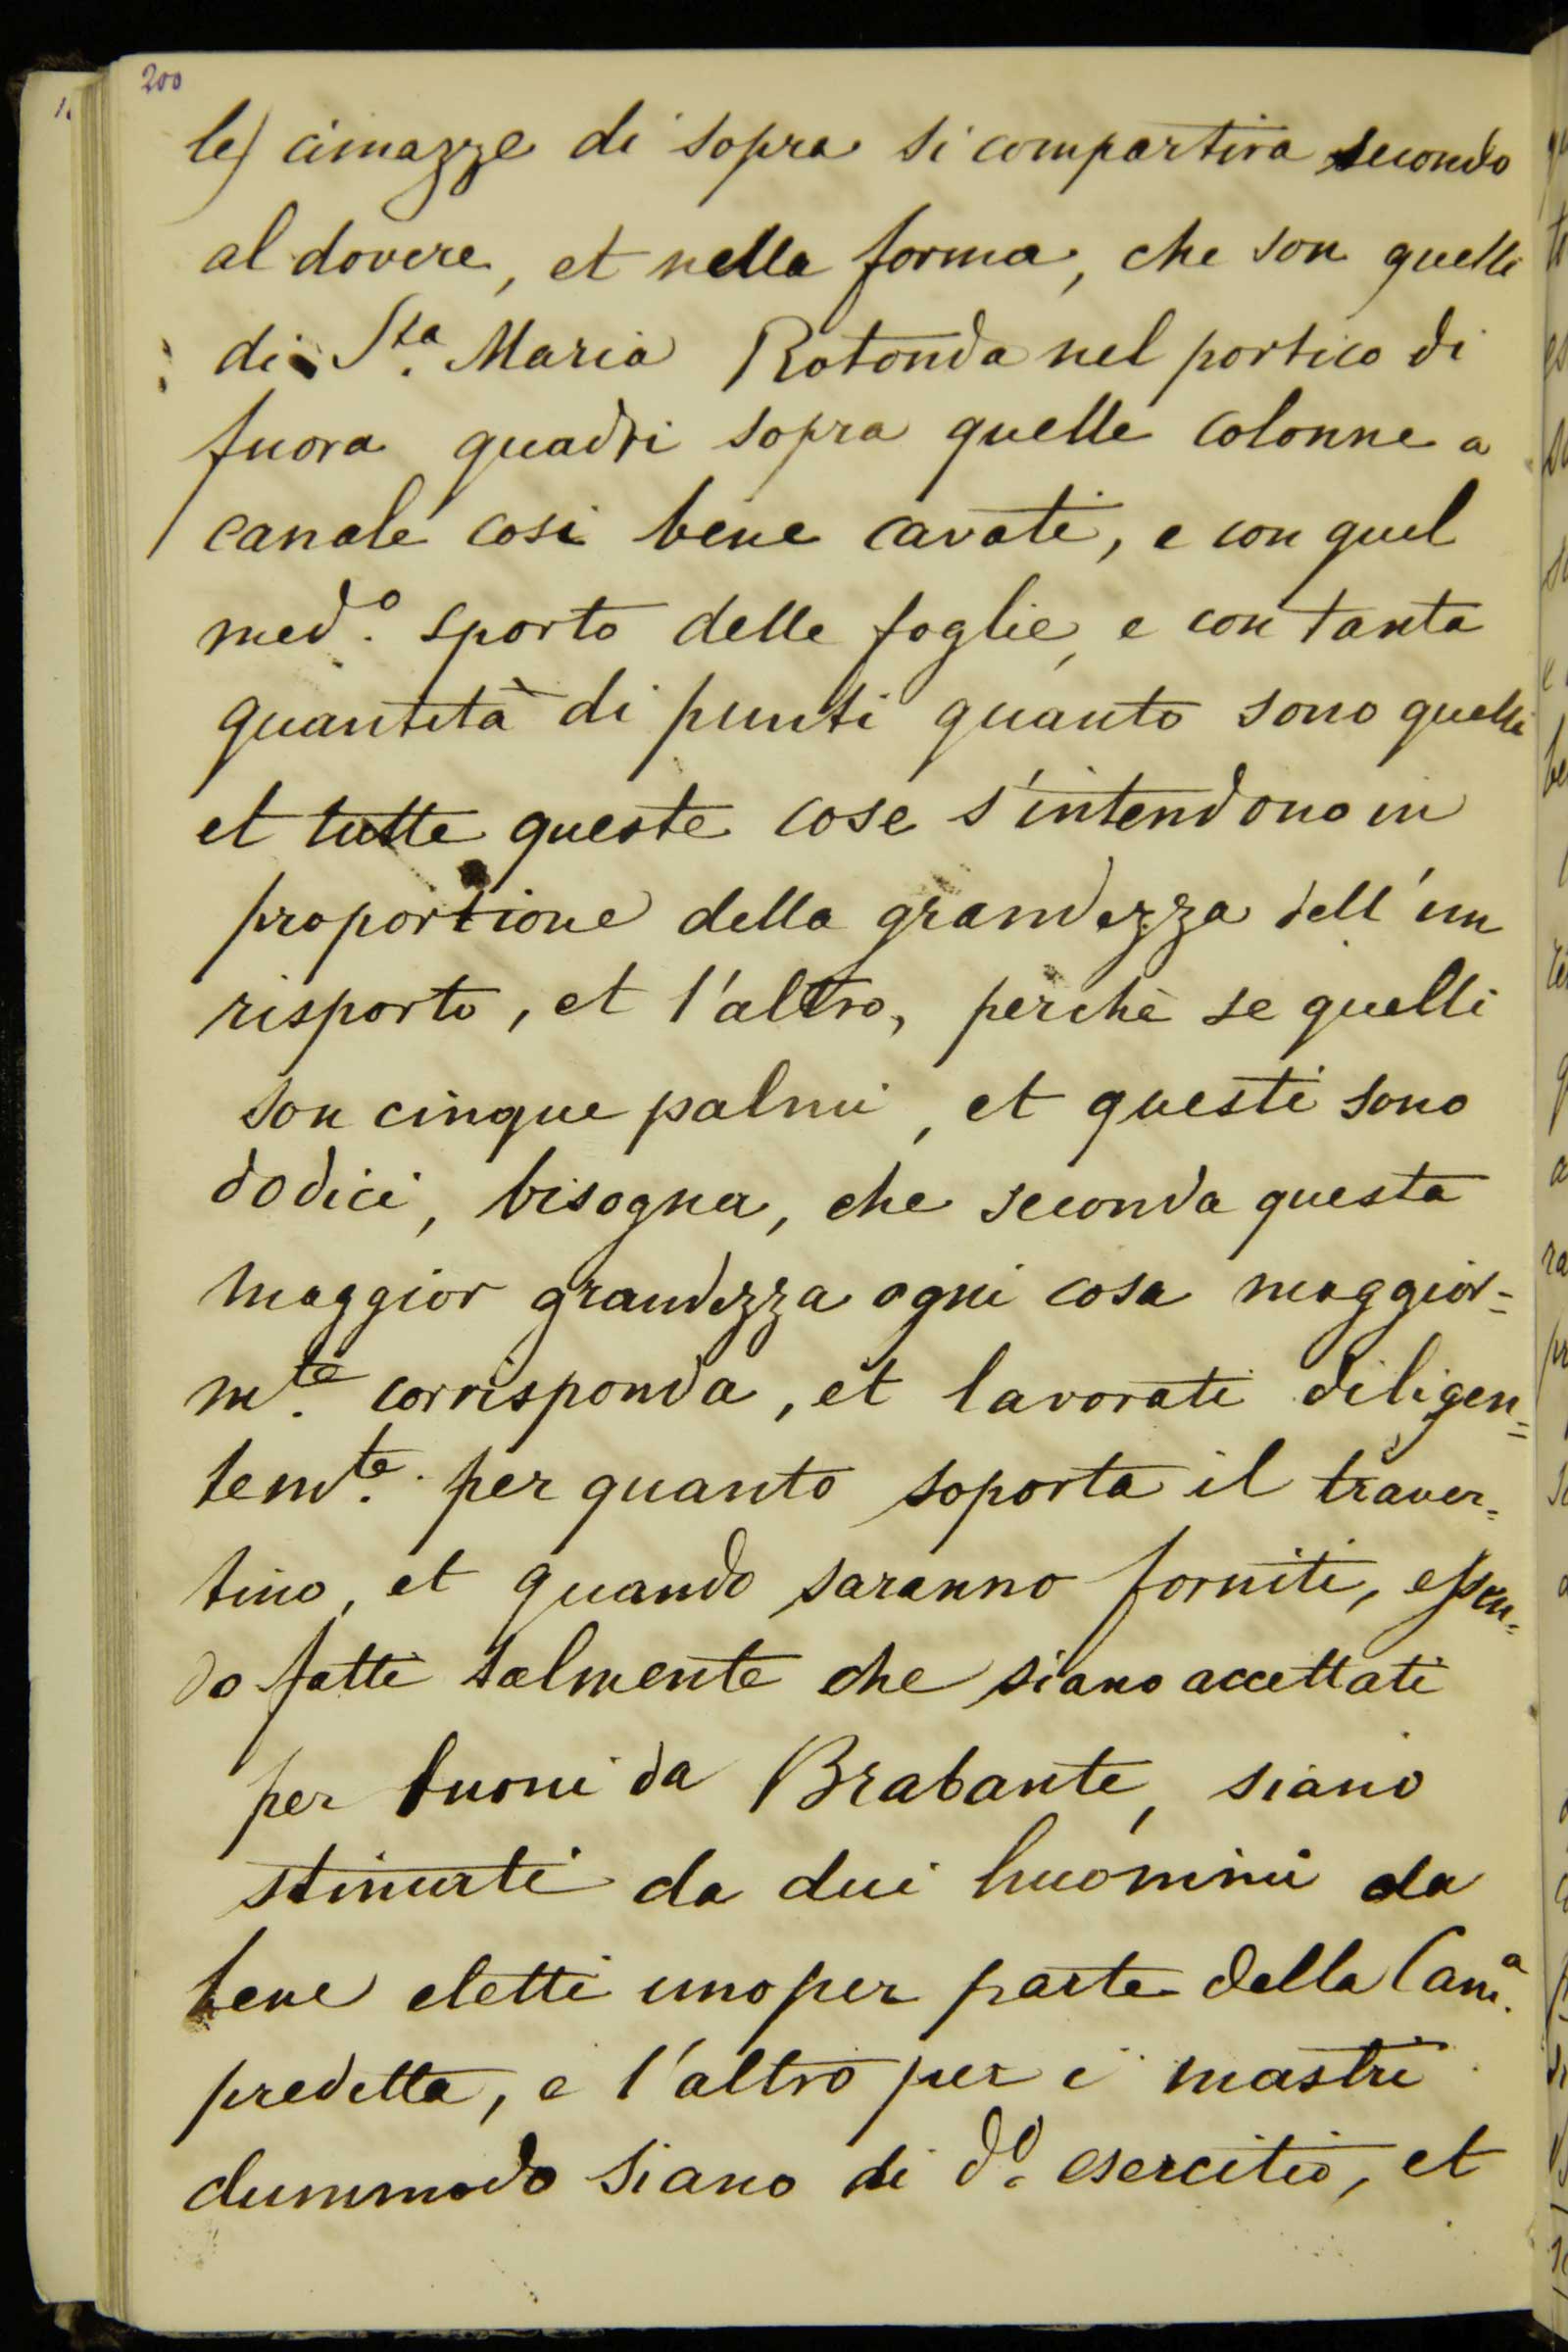 200
le) cimazze di sopra si compartira secondo
al dovere, et nella forma, che son quelli
di Sta. Maria Rotonda nel portico di
fuora quadri sopra quelle colonne a
canale cosi bene cavati, e con quel
medo. sporto delle foglie, e con tanta
quantità di punti quanto sono quelli
et tutte queste cose s'intendono in
proportione della grandezza dell'un
risporto, et l'altro, perchè se quelli
son cinque palmi, et questi sono
dodici, bisogna, che seconda questa
maggior grandezza ogni cosa maggior=
mte. corrisponda, et lavorati diligen=
temte. per quanto soporta il traver=
tino, et quando saranno forniti, essen=
do fatti talmente che siano accettati
per buoni da Brabante, siano
stimati da dui huomini da
bene eletti uno per parte della Cama.
predetta, e l'altro per i mastri
dummodo siano di do. esercitio, et